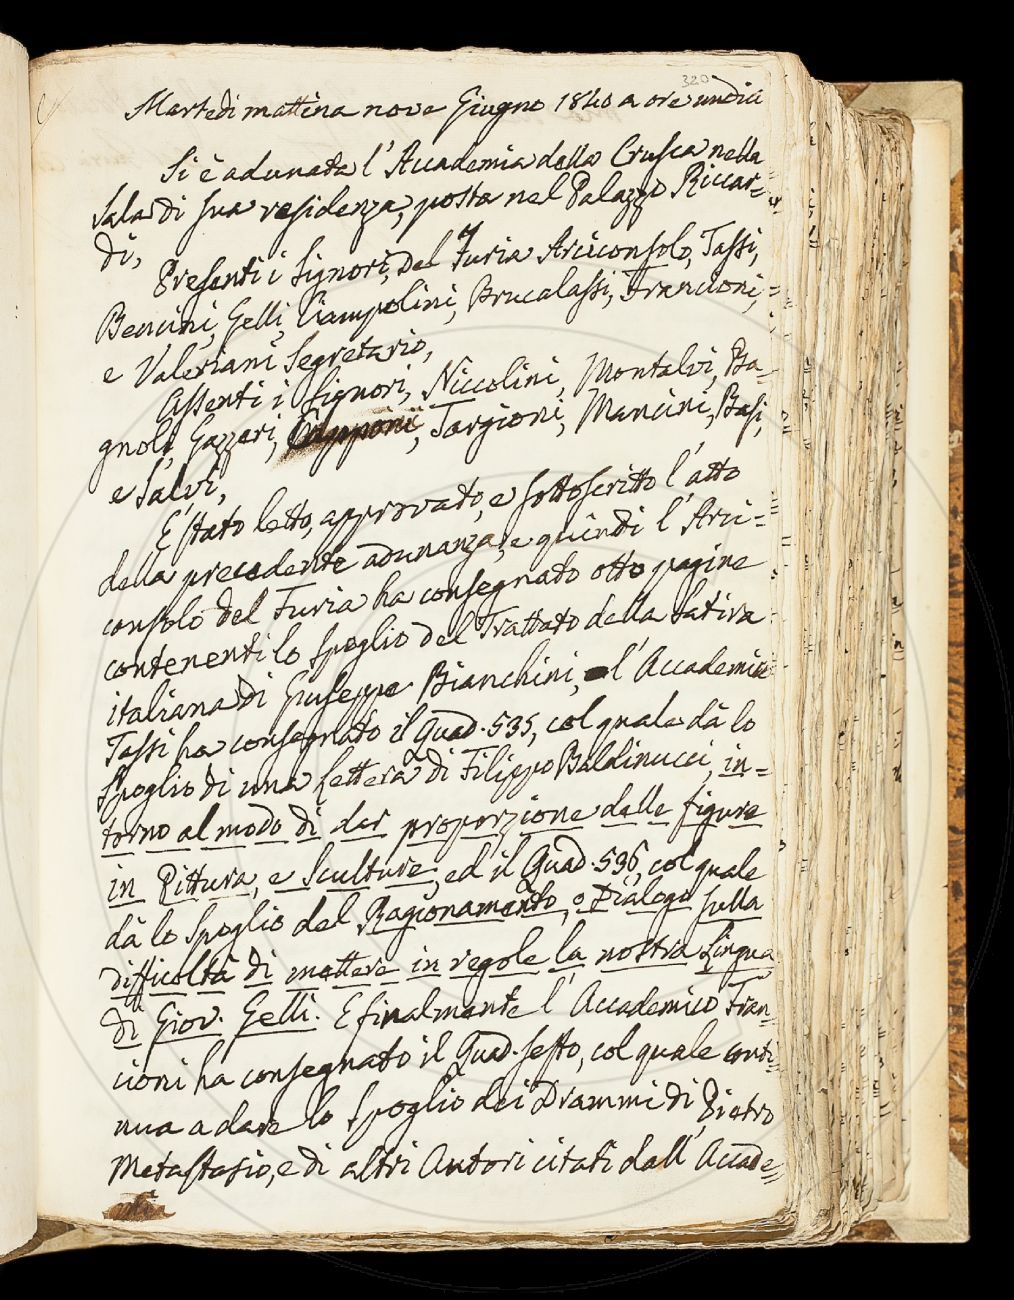 320
Martedi mattina nove Giugno 1840 a ore undici
Si è adunata l'Accademia della Crusca nella
Sala di sua residenza, posta nel Palazzo Riccar=
di,
Presenti i Signori, Del Furia Arciconsolo, Tassi,
Bencini, Gelli, Ciampolini, Brucalassi, Francioni,
e Valeriani Segretario,
Assenti i Signori, Niccolini, Montalvi, Ba=
gnoli, Gazzeri, Capponi, Targioni, Mancini, Basi,
e Salvi,
E' stato letto, approvato, e sottoscritto l'atto
della precedente adunanza, e quindi l'Arci=
consolo Del Furia ha consegnato otto pagine
contenenti lo spoglio del Trattato della Satira
italiana di Giuseppe Bianchini, l'Accademico
Tassi ha consegnato il Quad. 535, col quale dà lo
Spoglio di una Lettera di Filippo Baldinucci, in=
torno al modo di dar proporzione alle figure
in Pittura, e Sculture, ed il Quad. 536, col quale
dà lo Spoglio del Ragionamento, o Dialogo sulla
difficoltà di mettere in regole la nostra Lingua
di Giov. Gelli. E finalmente l'Accademico Fran=
cioni ha consegnato il Quad. sesto, col quale conti=
nua a dare lo Spoglio dei Drammi di Pietro
Metastasio, e di altri Autori citati dall'Accade=